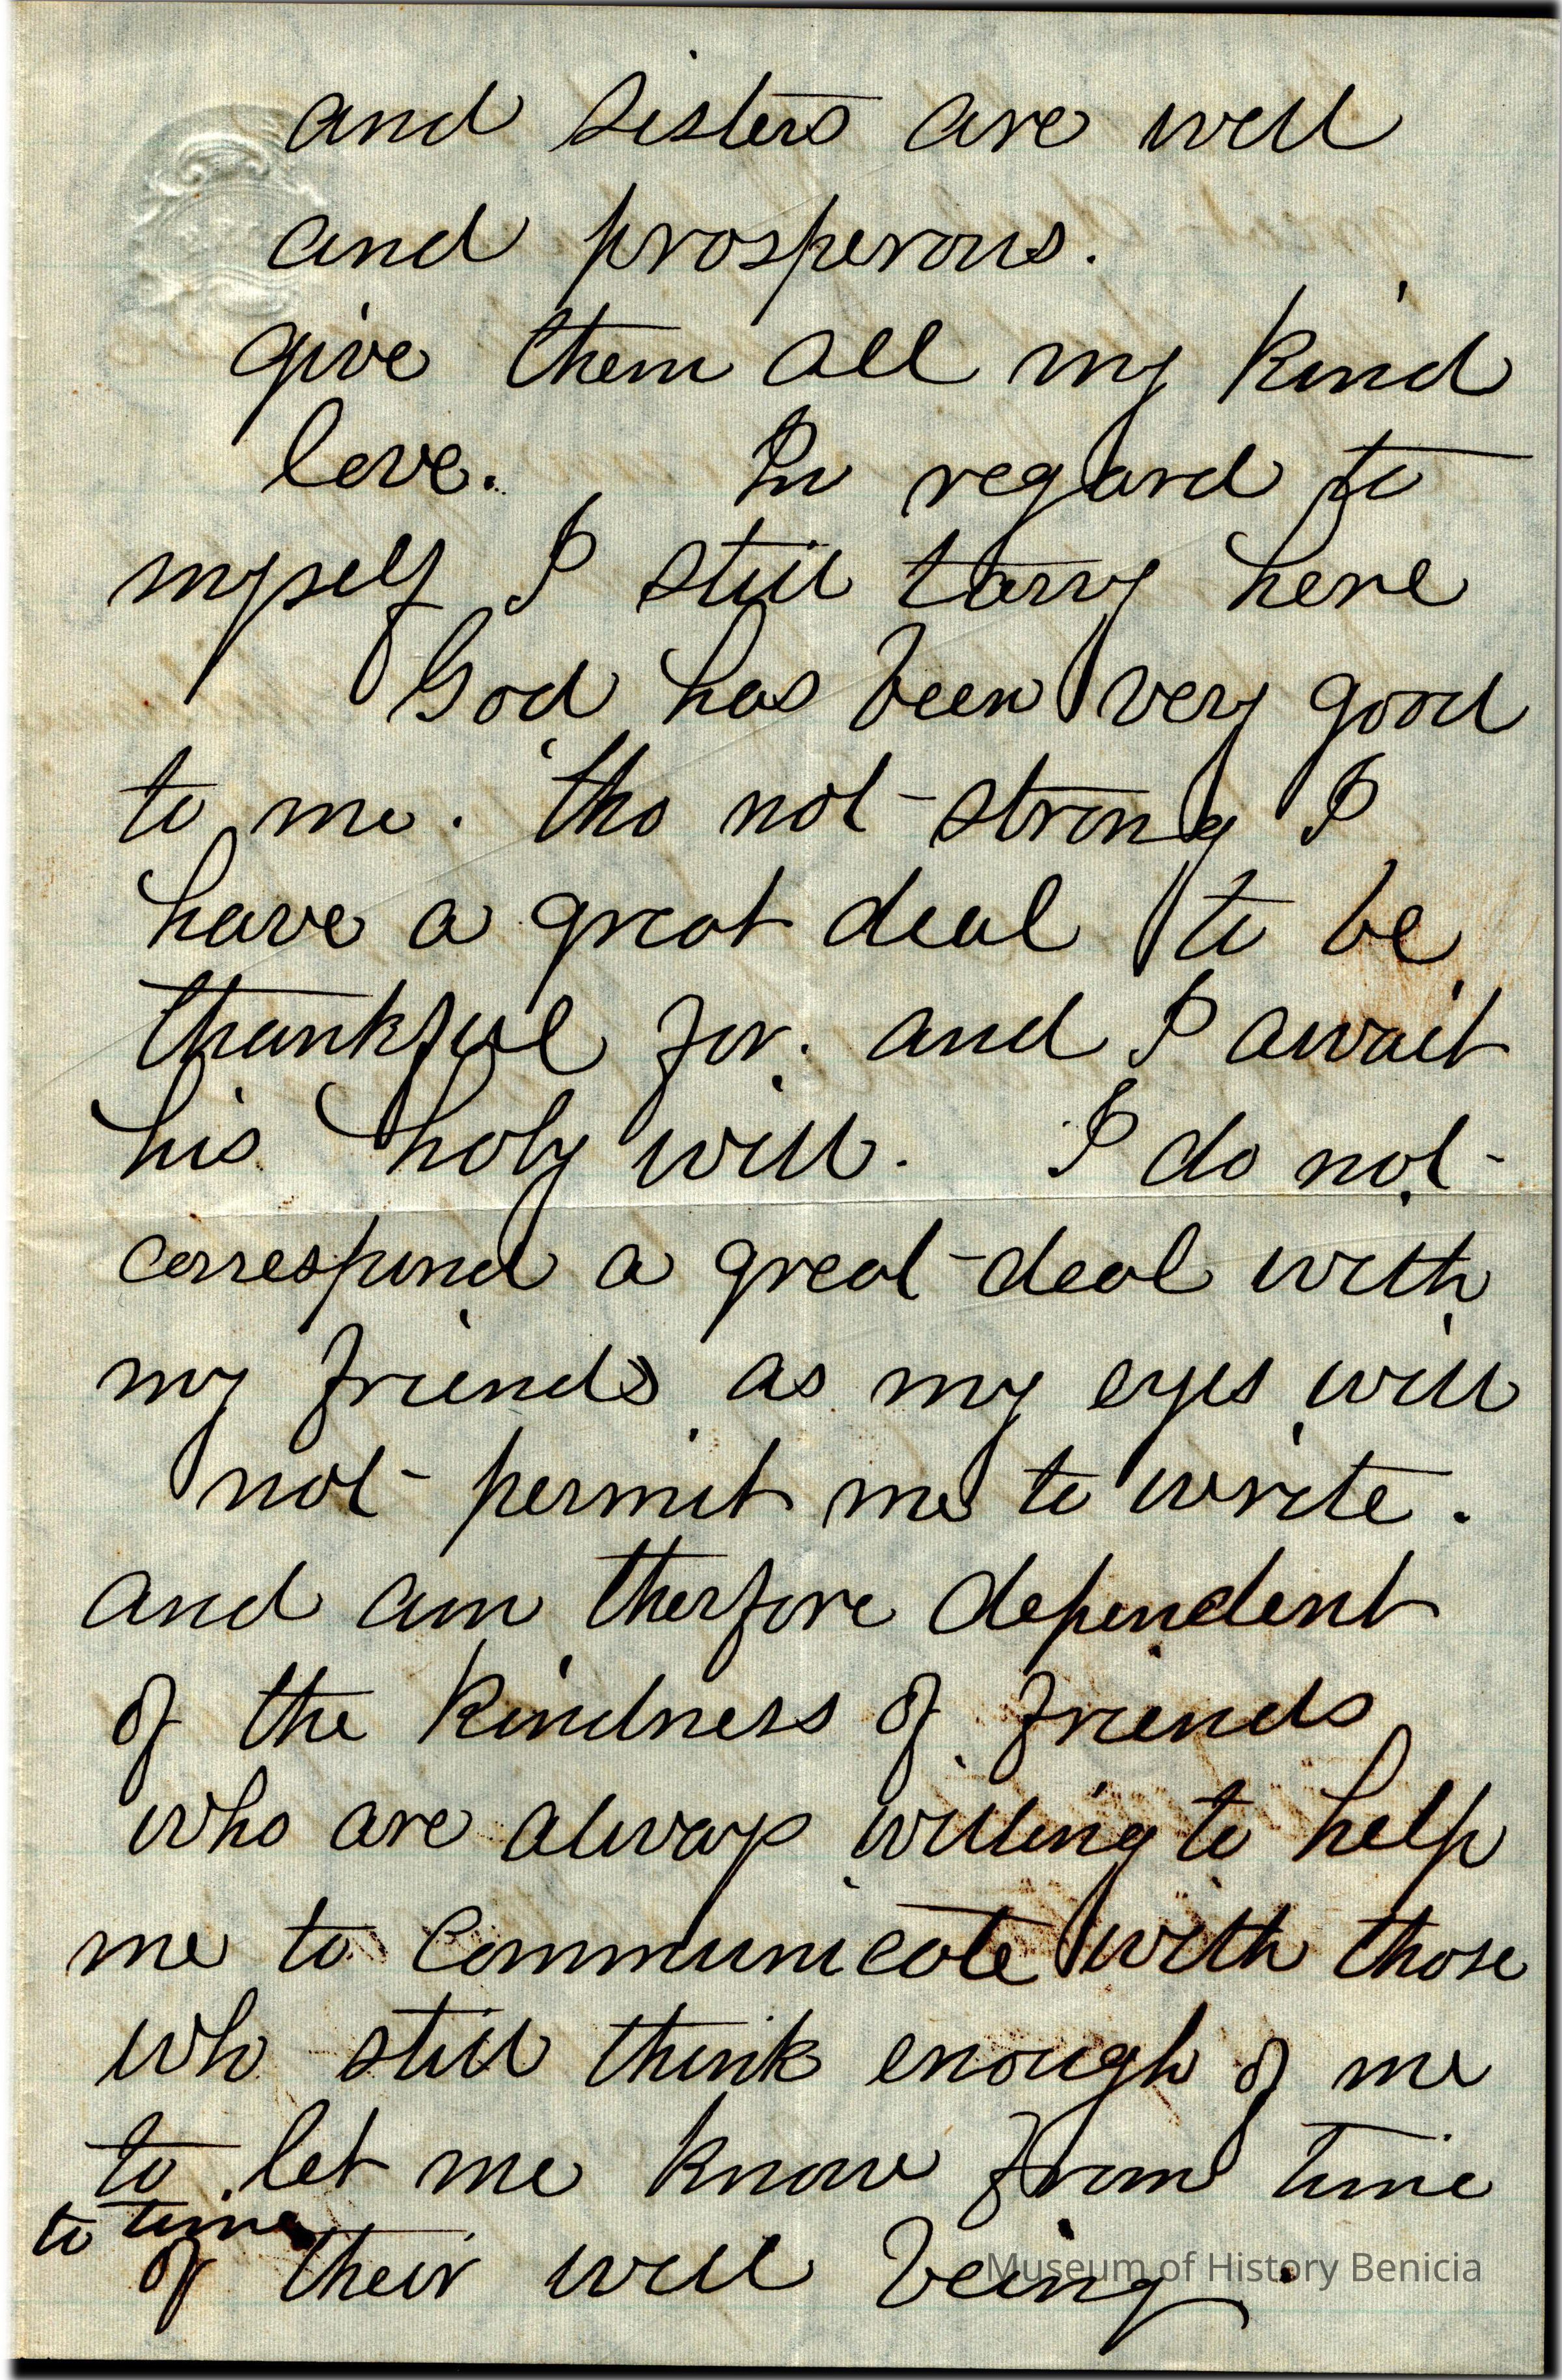 and sisters are well
and prosperous.
give them all my kind
love. In regard to
myself I still tarry here
God has been very good
to me. tho not strong I
have a great deal to be
thankful for. and I await
his holy will. I do not
correspond a great deal with
my friends as my eyes will
not permit me to write.
and am therfore dependent
of the kindness of friends
who are always willing to help
me to communicate with those
who still think enough of me
to let me know from time
to time
of their well being.
Museum of History Benicia